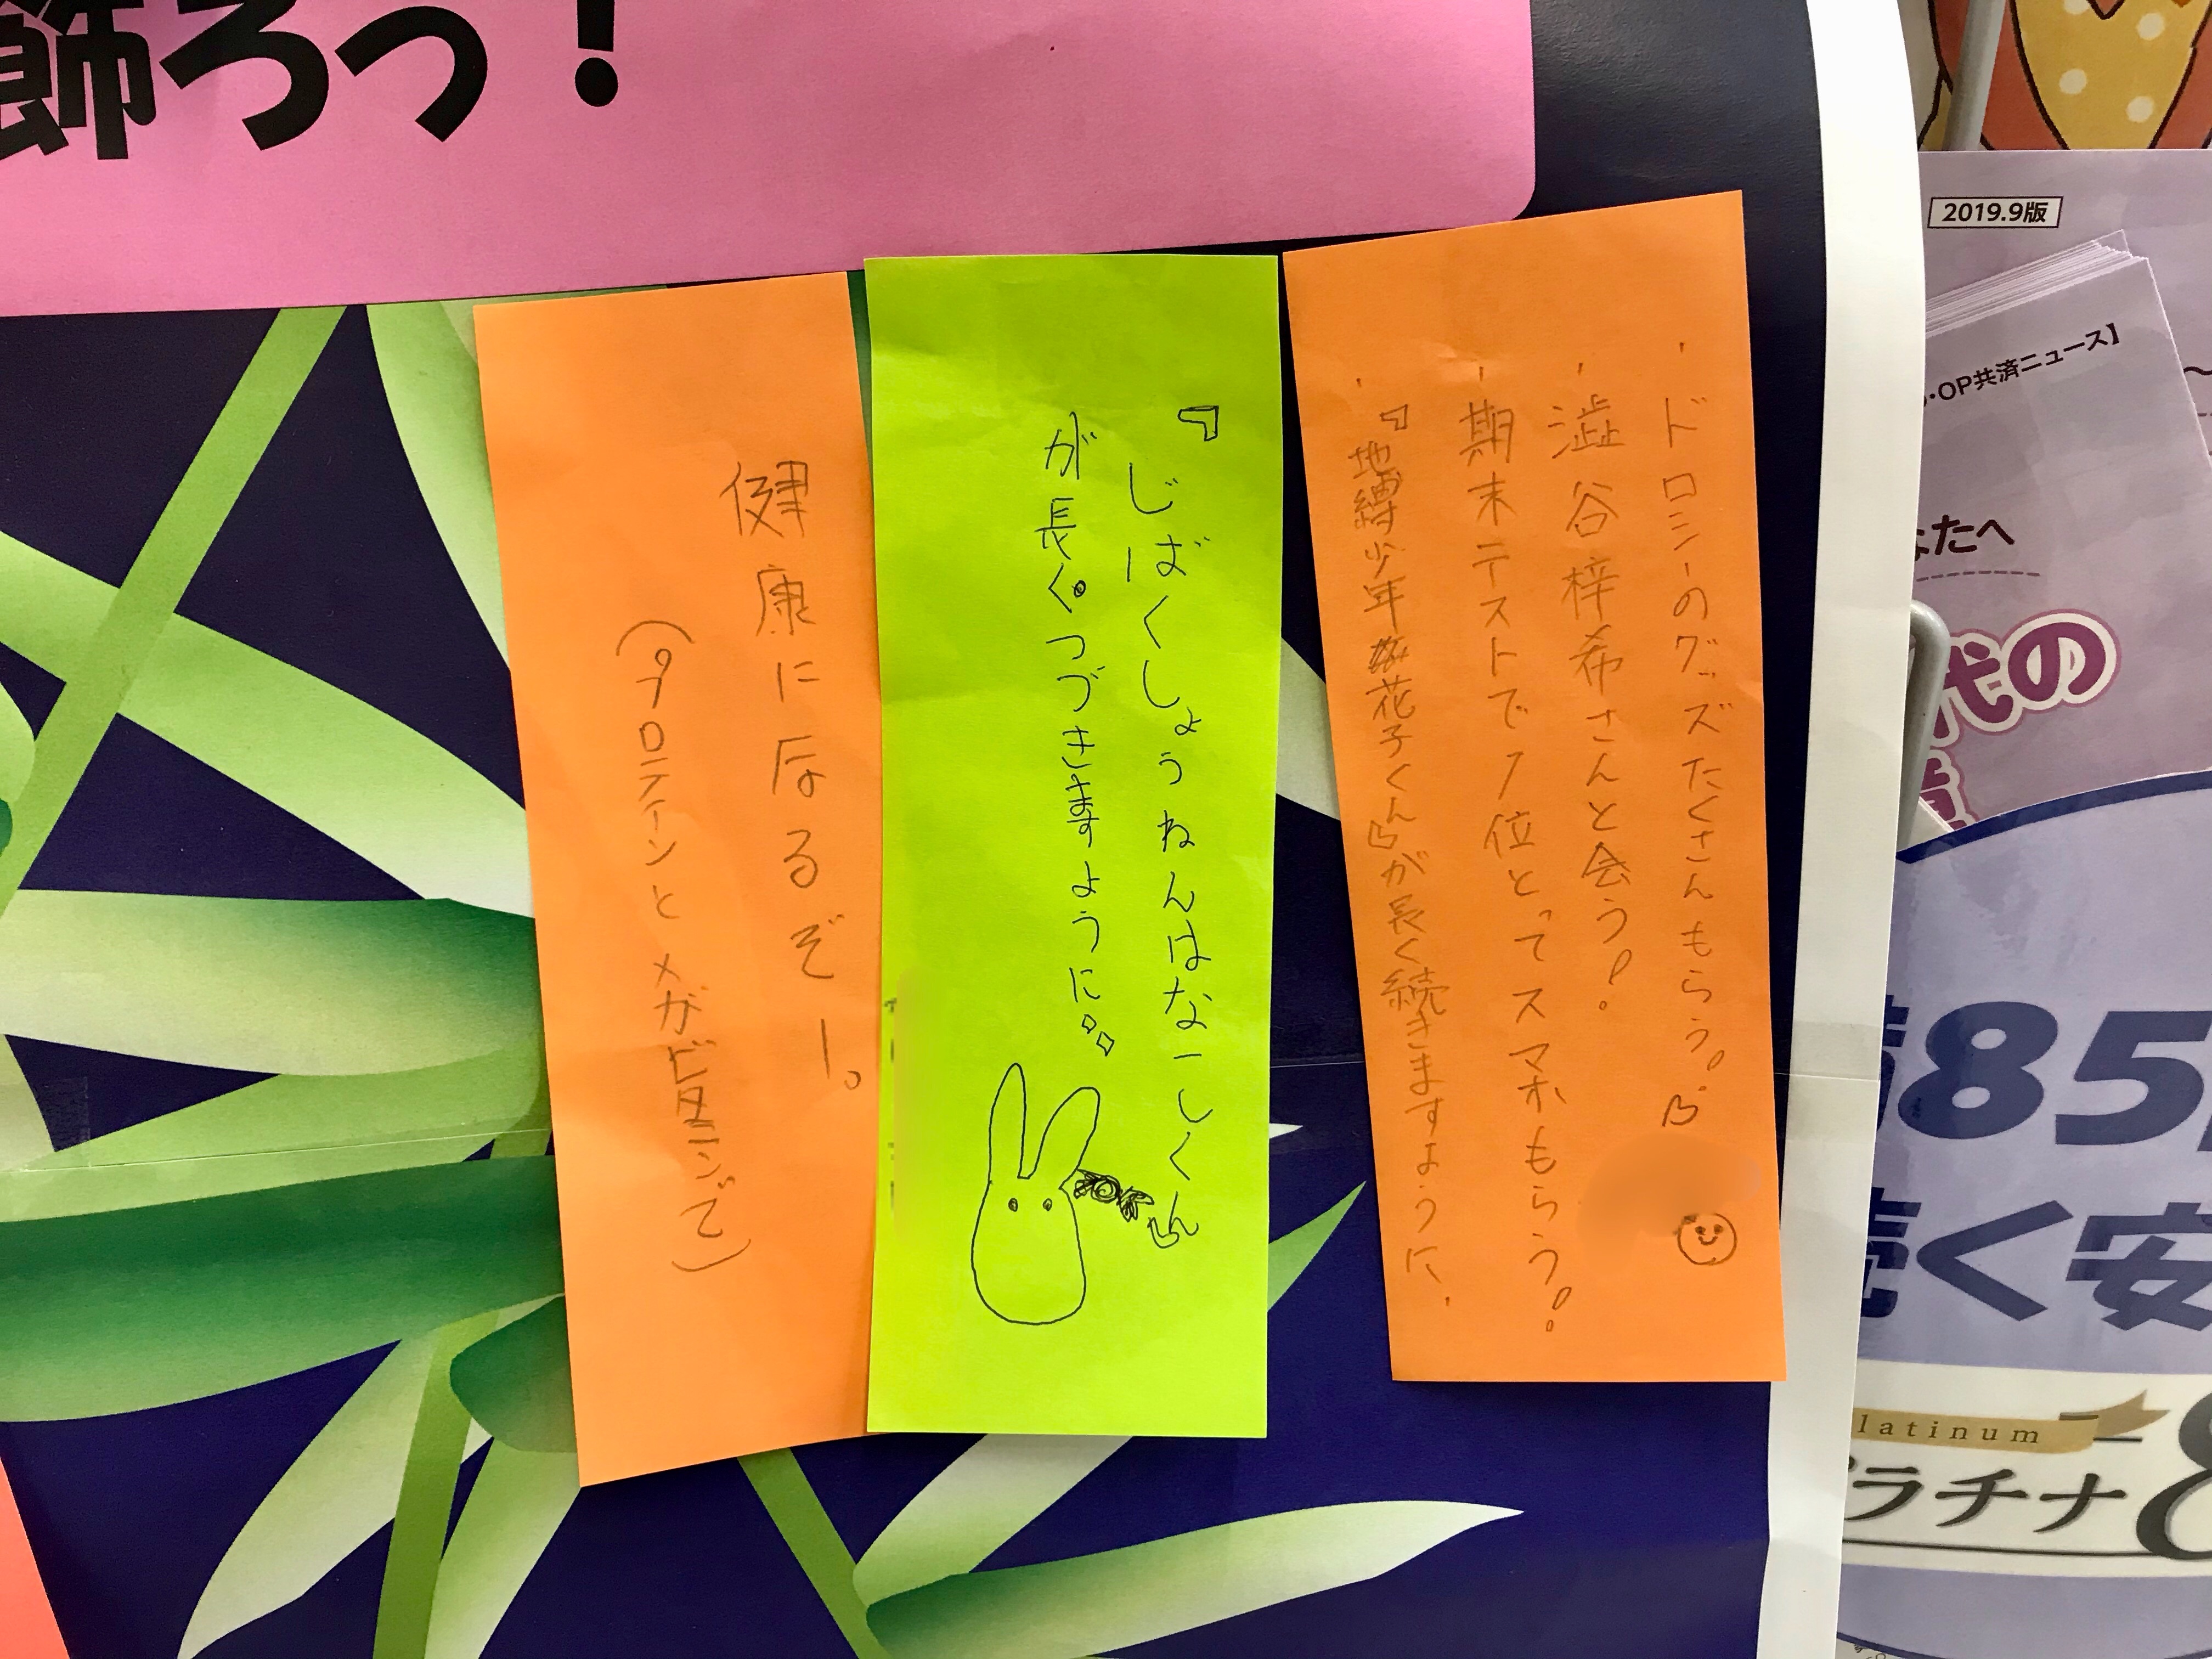 飾ろう！
・ドロシーのグッズたくさんもらう！
・澁谷梓希さんと会う！
・期末テストで1位とってスマホもらう！
・『地縛少年花子くん』が長く続きますように．
『じばくしょうねんはなこくん』
が長くつづきますように
健康になるぞー。
(プロテインとメガビタミンで)
2019.9版
・OP共済ニュース】
なたへ
代の
85
続く安
latinum
プラチナ8